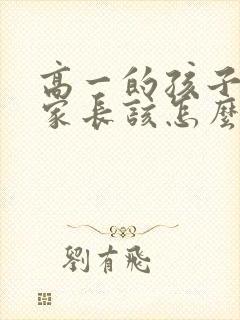 高一的孩子
家长该怎麼
劉有飛